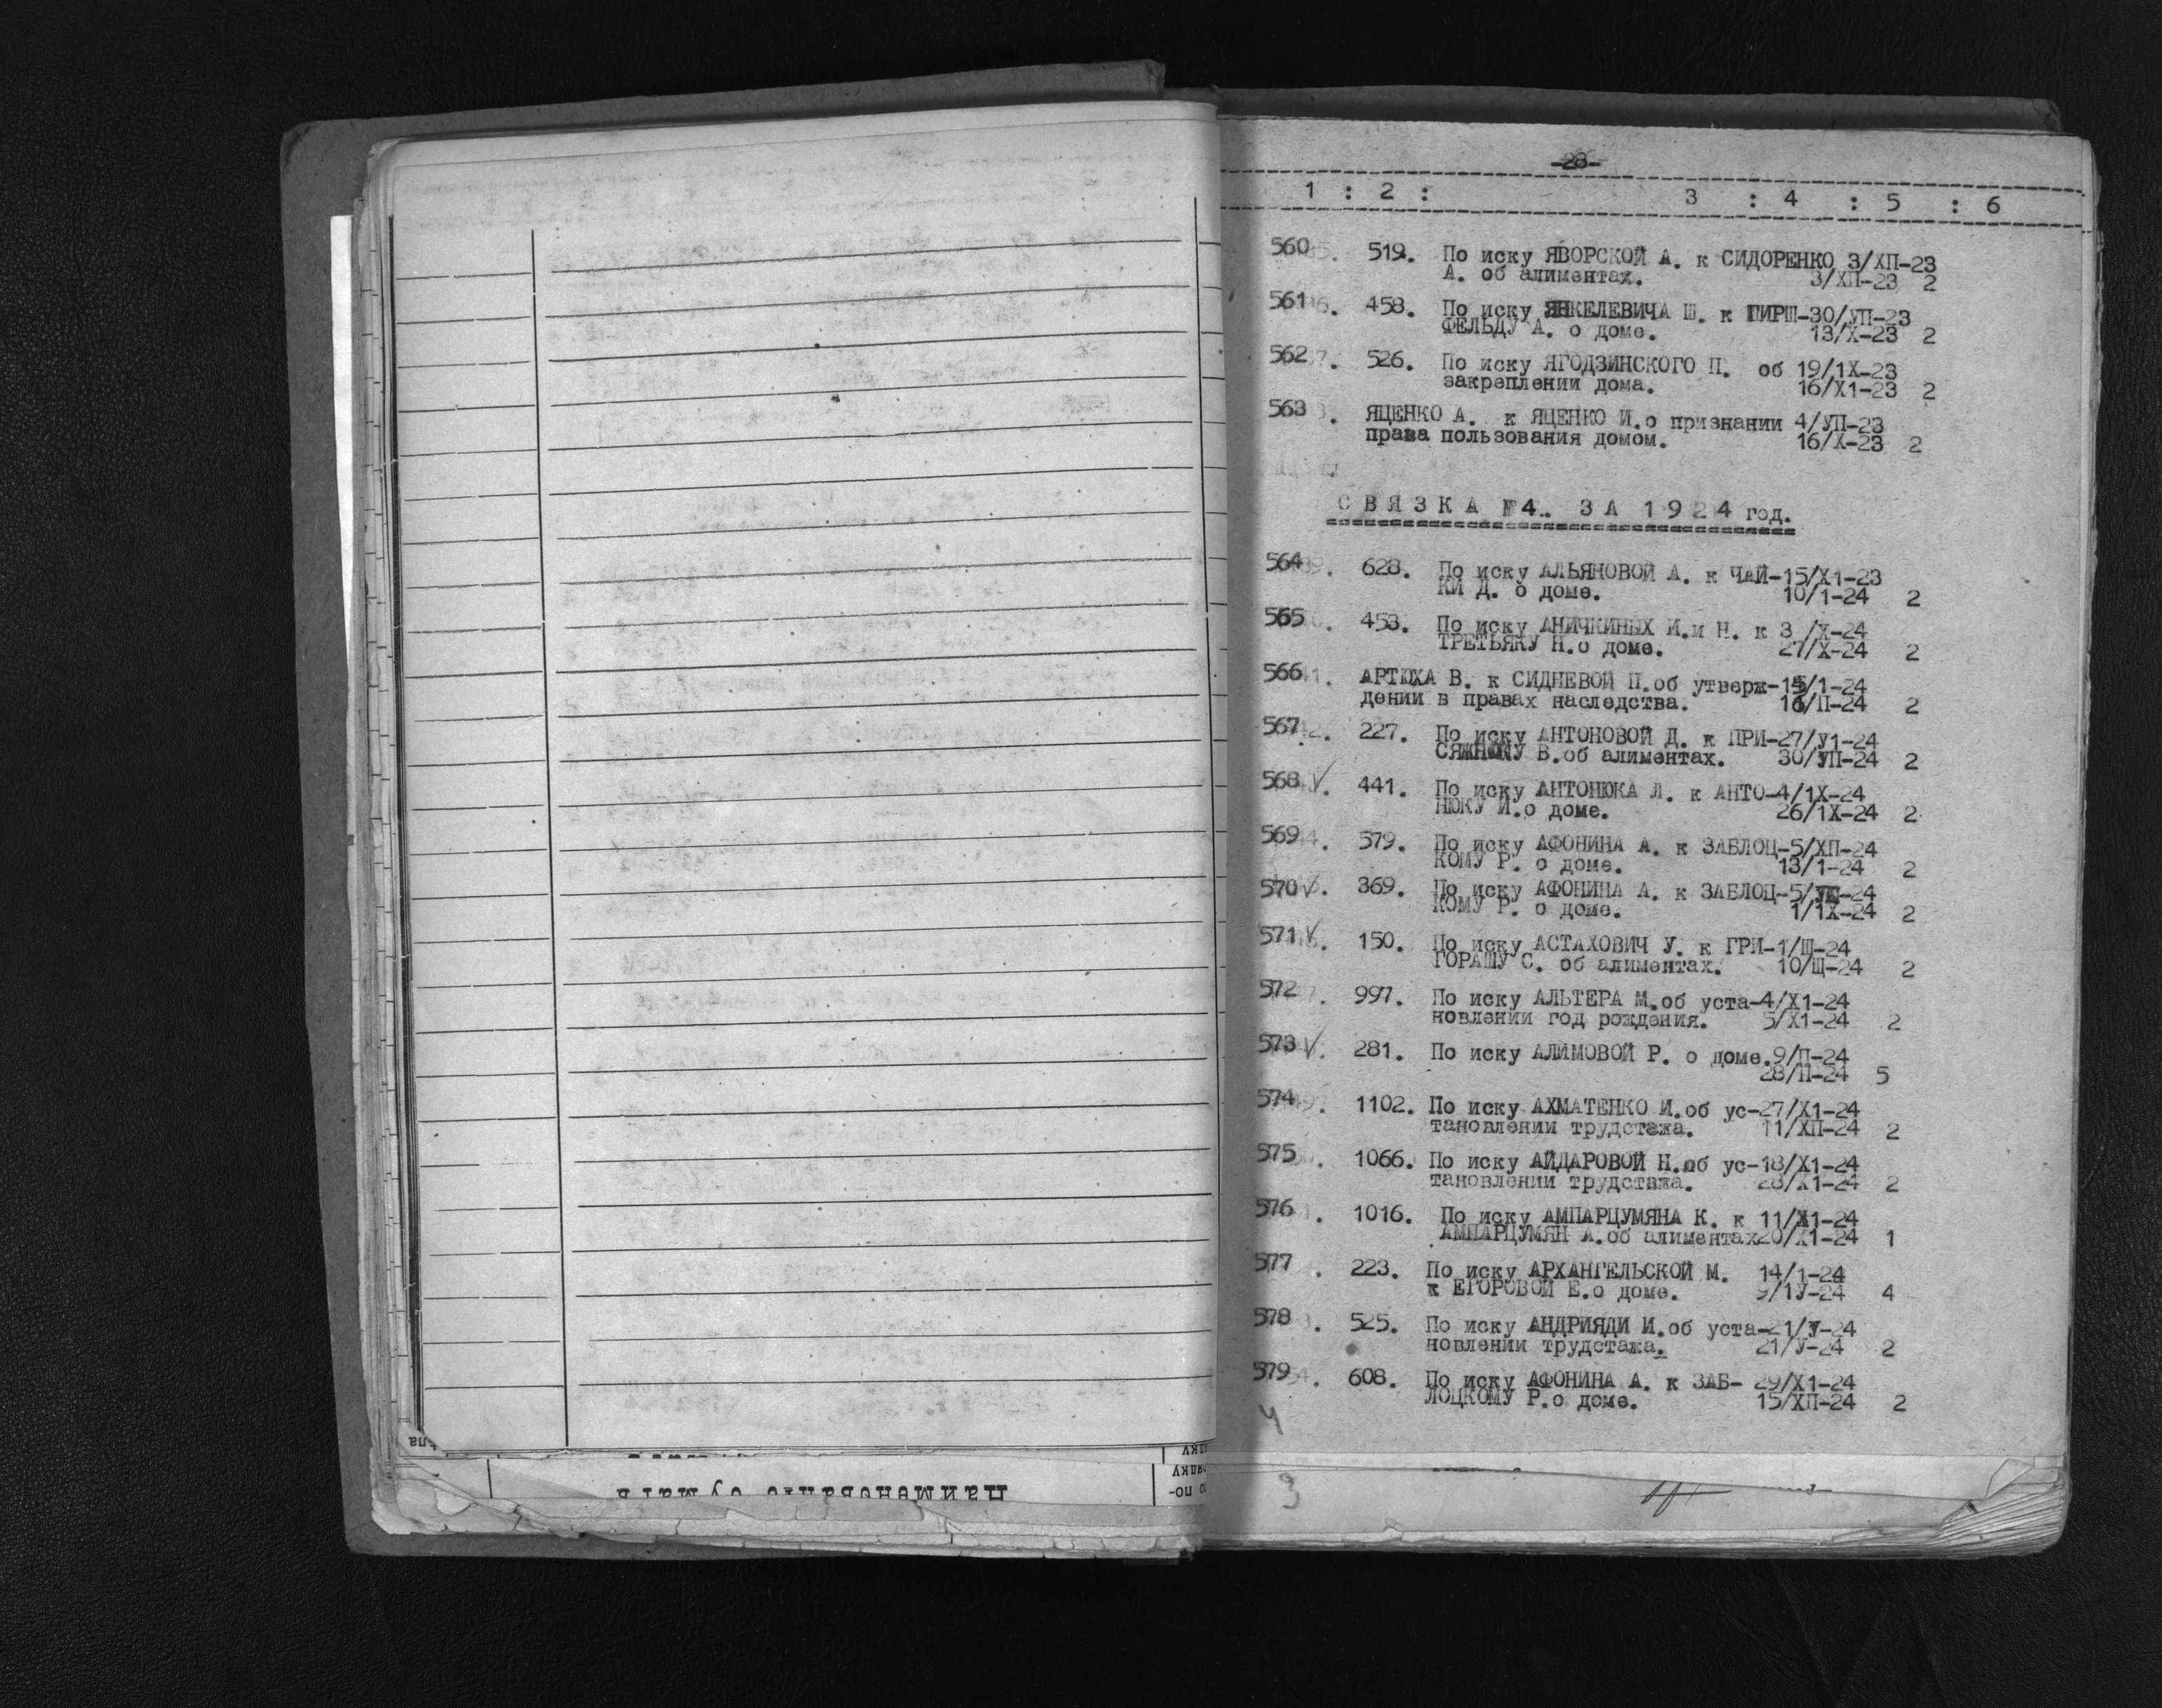 -28-
1 : 2 : 3 : 4 : 5 : 6
560 . 519. По иску ЯВОРСКОЙ А. к СИДОРЕНКО 3/ХП-23
А. об алиментах. 3/ХП-23 2
561 . 458. По иску ЯНКЕЛЕВИЧА Ш. к ГИРШ-30/УП-23
ФЕЛЬДУ А. о доме. 13/Х-23 2
562 . 526. По иску ЯГОДЗИНСКОГО П. об 19/1Х-23
закреплении дома. 16/Х1-23 2
563 . ЯЦЕНКО А. к ЯЦЕНКО И.о признании 4/УП-23
права пользования домом. 16/Х-23 2
С В Я З К А №4. З А 1 9 2 4 год.
564 . 628. По иску АЛЬЯНОВОЙ А. к ЧАЙ-15/Х1-23
КИ Д. о доме. 10/1-24 2
565 . 453. По иску АНИЧКИНЫХ И.и Н. к 3 /Х-24
ТРЕТЬЯКУ Н.о доме. 27/Х-24 2
566 . АРТЮХА В. к СИДНЕВОЙ П.об утверж-15/1-24
дении в правах наследства. 16/П-24 2
567 . 227. По иску АНТОНОВОЙ Д. к ПРИ-27/У1-24
СЯЖНОМУ В.об алиментах. 30/УП-24 2
568 V. 441. По иску АНТОНЮКА Л. к АНТО-4/1Х-24
НЮКУ И.о доме. 26/1Х-24 2
569 . 579. По иску АФОНИНА А. к ЗАБЛОЦ-5/ХП-24
КОМУ Р. о доме. 13/1-24 2
570 V. 369. По иску АФОНИНА А. к ЗАБЛОЦ-5/УШ-24
КОМУ Р. о доме. 1/1Х-24 2
571 V. 150. По иску АСТАХОВИЧ У. к ГРИ-1/Ш-24
ГОРАШУ С. об алиментах. 10/Щ-24 2
572 . 997. По иску АЛЬТЕРА М.об уста-4/Х1-24
новлении год рождения. 5/Х1-24 2
573 V. 281. По иску АЛИМОВОЙ Р. о доме.9/П-24
28/П-24 5
574 . 1102. По иску АХМАТЕНКО И.об ус-27/Х1-24
тановлении трудстажа. 11/ХП-24 2
575 . 1066. По иску АЙДАРОВОЙ Н.об ус-18/Х1-24
тановлении трудстажа. 28/Х1-24 2
576 . 1016. По иску АМПАРЦУМЯНА К. к 11/Х1-24
АМПАРЦУМЯН А.об алиментах20/Х1-24 1
577 . 223. По иску АРХАНГЕЛЬСКОЙ М. 14/1-24
к ЕГОРОВОЙ Е.о доме. 9/1У-24 4
578 . 525. По иску АНДРИЯДИ И.об уста-21/У-24
новлении трудстажа. 21/У-24 2
579 . 608. По иску АФОНИНА А. к ЗАБ- 29/Х1-24
ЛОЦКОМУ Р.о доме. 15/ХП-24 2
4
3